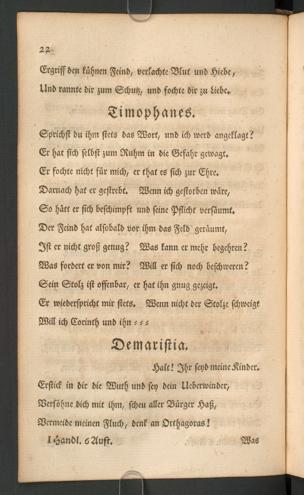 22
Ergriff den kühnen Feind, verlachte Blut und Hiebe,
Und rannte dir zum Schutz, und fochte dir zu Liebe.
Timophanes.
Sprichst du ihm stets das Wort, und ich werd angeklagt?
Er hat sich selbst zum Ruhm in die Gefahr gewagt.
Er fochte nicht für mich, er that es sich zur Ehre.
Darnach hat er gestrebt. Wenn ich gestorben wäre,
So hätt er sich beschimpft und seine Pflicht versäumt.
Der Feind hat alsobald vor ihm das Feld geräumt,
Ist er nicht groß genug? Was kann er mehr begehren?
Was fordert er von mir? Will er sich noch beschweren?
Sein Stolz ist offenbar, er hat ihn gnug gezeigt.
Er wiederspricht mir stets. Wenn nicht der Stolze schweigt
Will ich Corinth und ihn ⸗⸗⸗
Demaristia.
Halt! Ihr seyd meine Kinder.
Erstick in dir die Wuth und sey dein Ueberwinder,
Versöhne dich mit ihm, scheu aller Bürger Haß,
Vermeide meinen Fluch, denk an Orthagoras!
I Handl. 6 Auft. Was